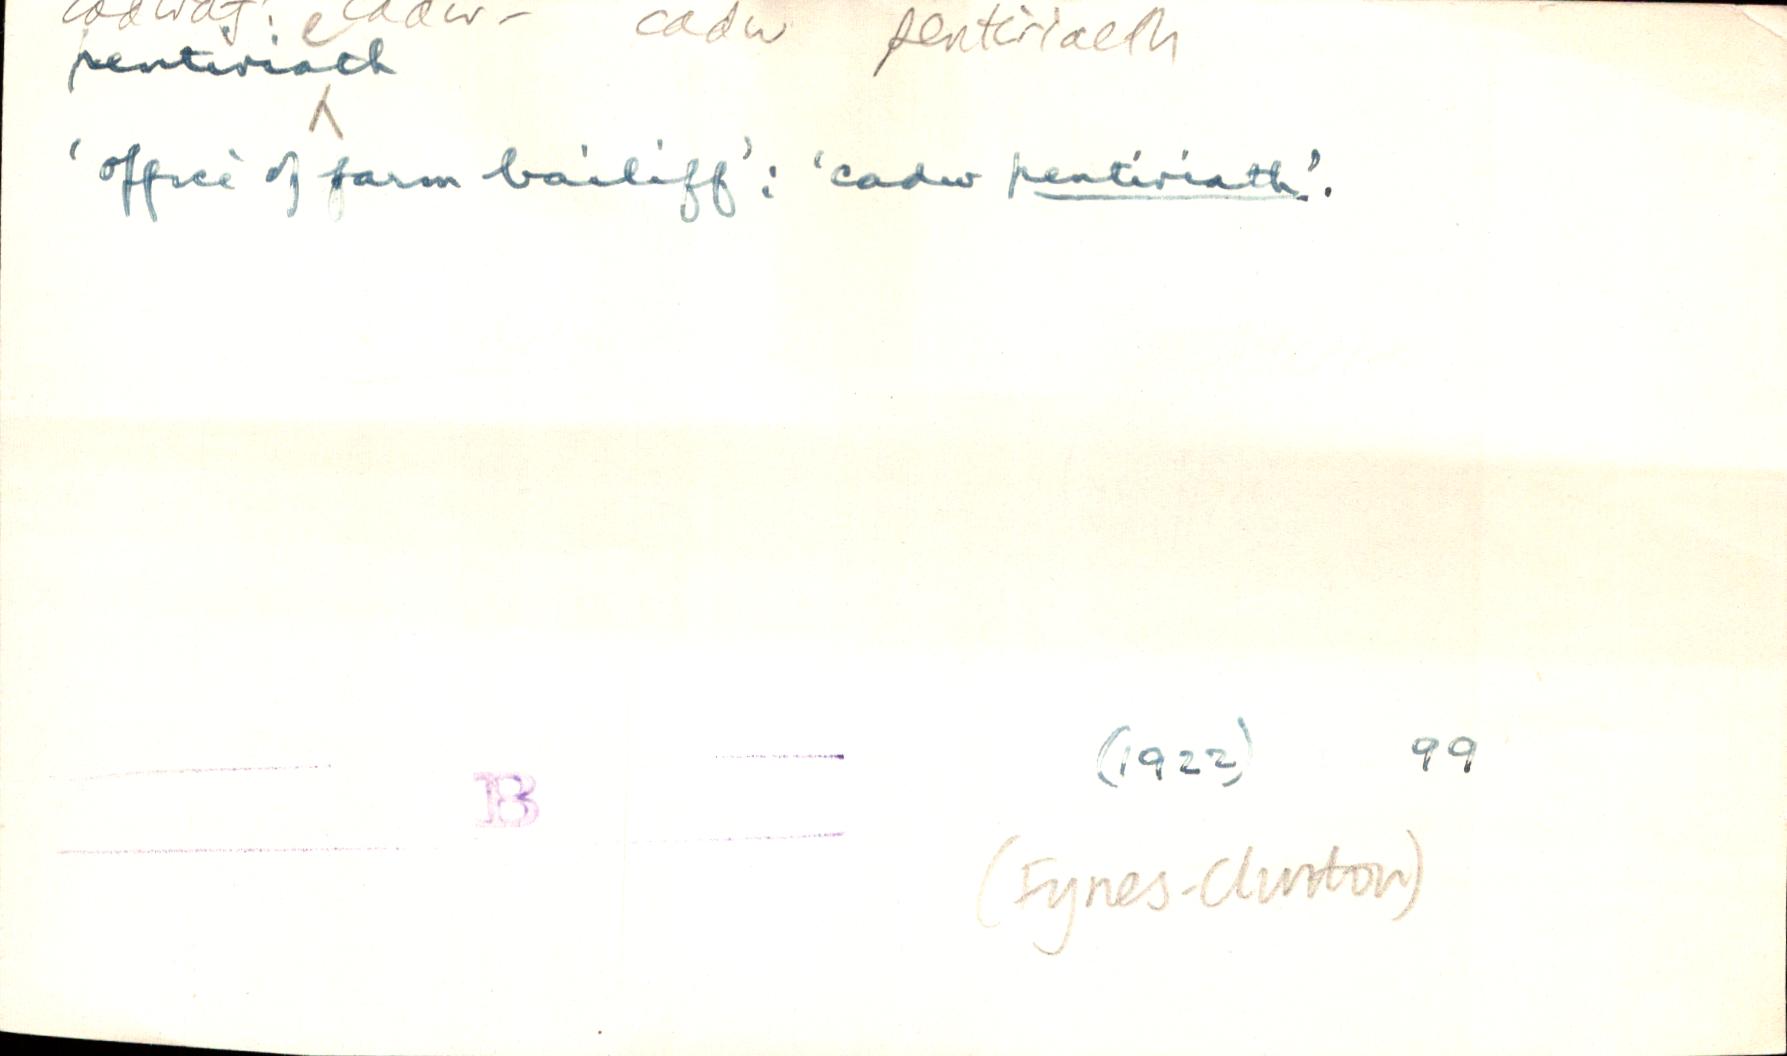 cadwaf: cadw- cadw pentiriaeth
pentiriath
e
'office of farm bailiff': 'cadw pentiriath'.
(1922) 99
B
(Fynes-Clinton)